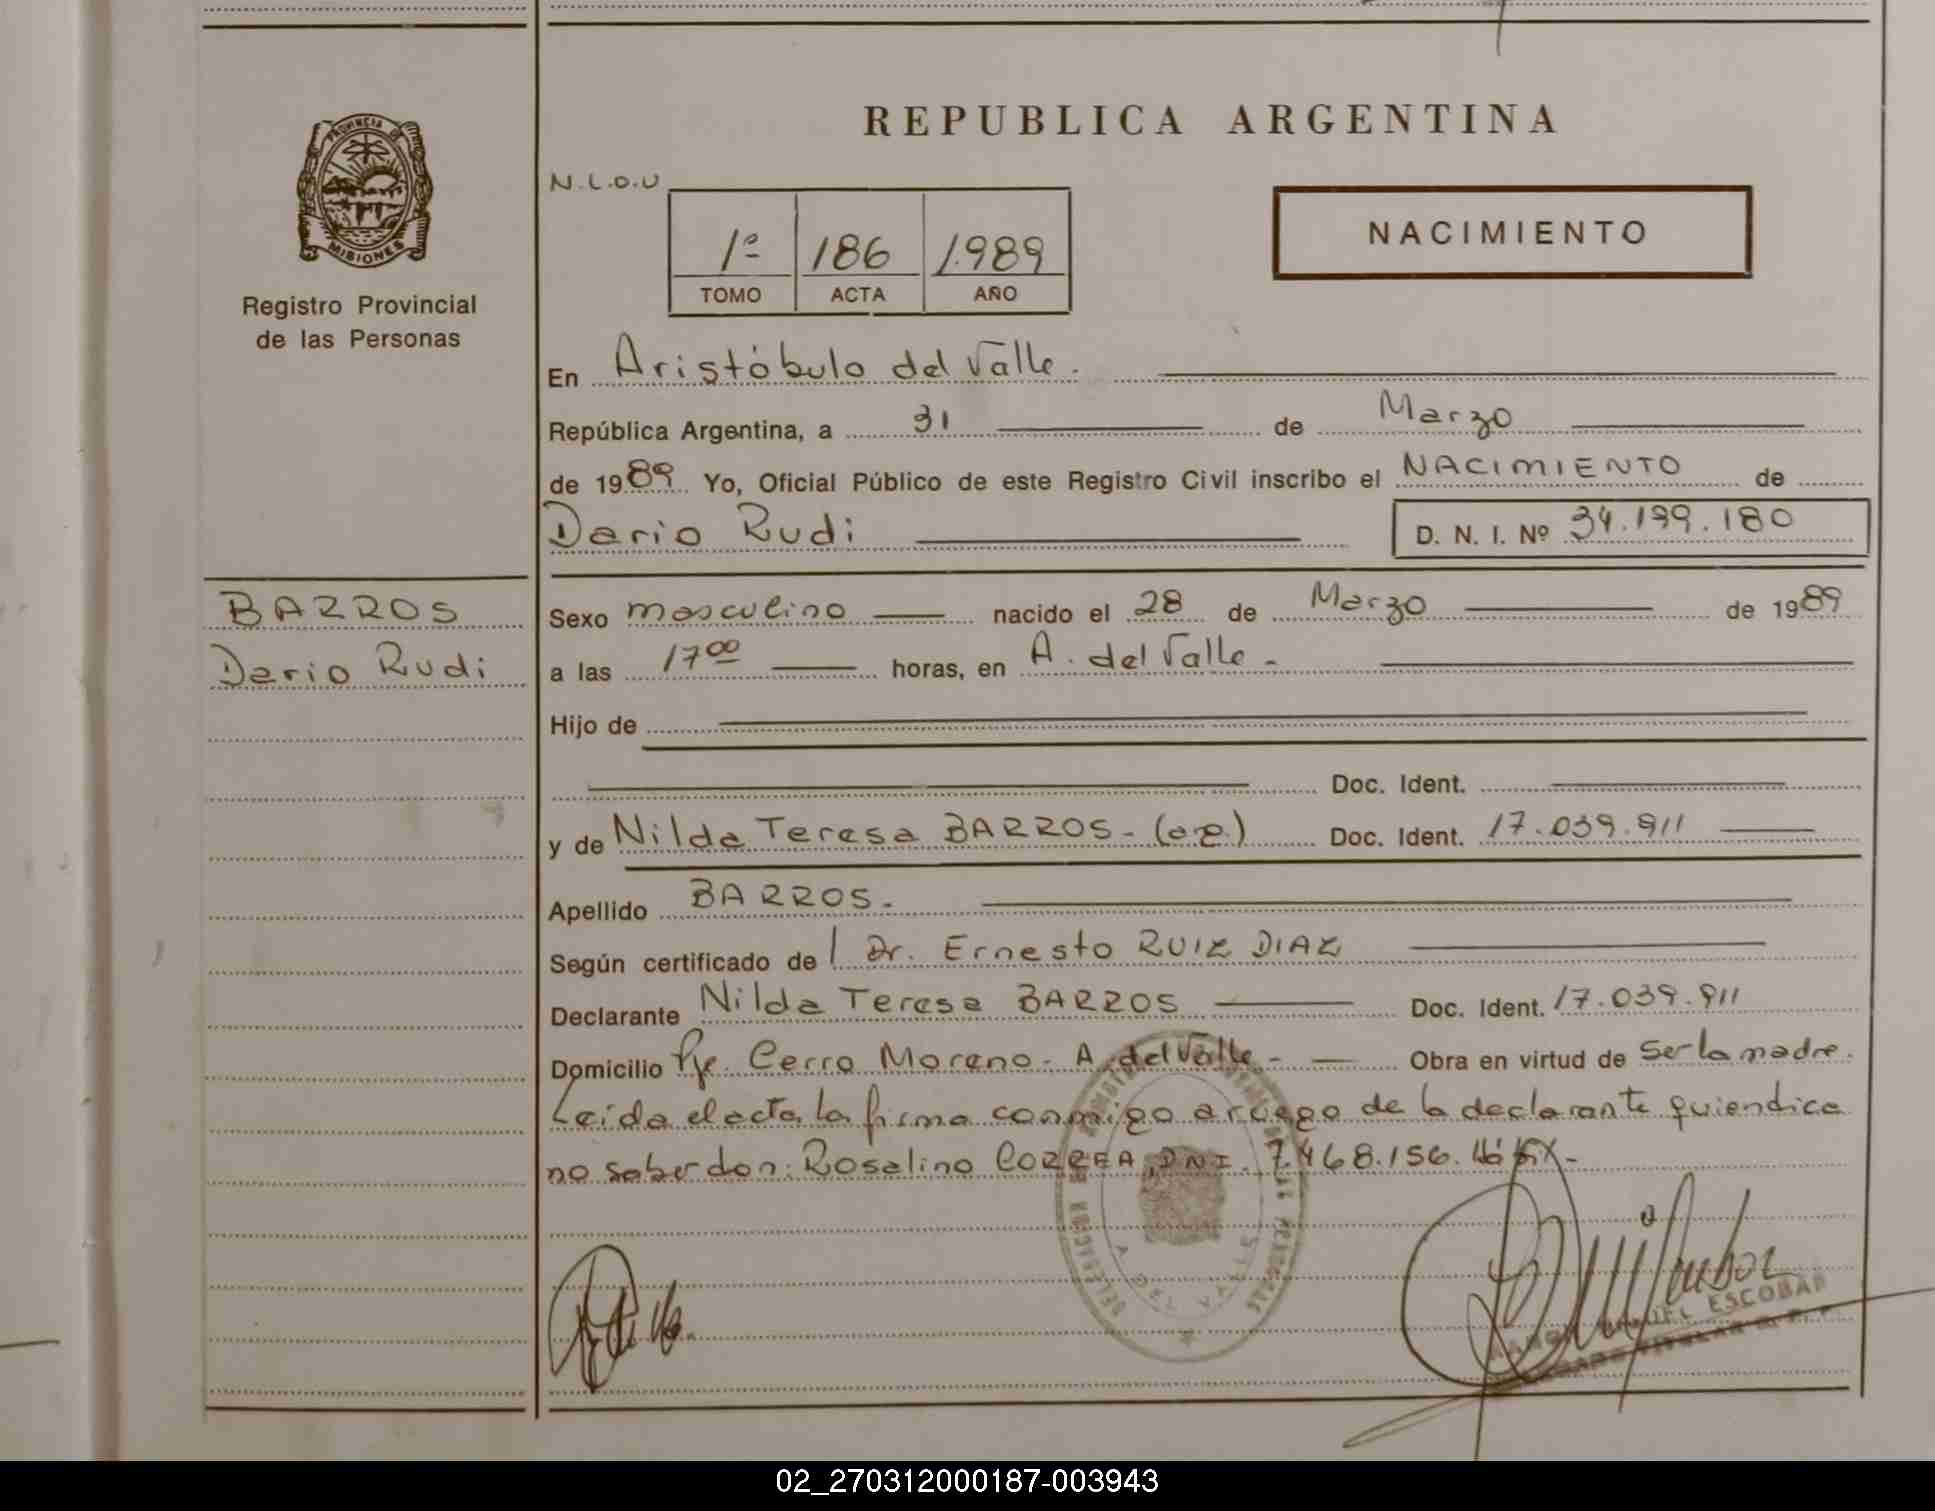 PROVINCIA DE
MISIONES
Registro Provincial
de las Personas
BARROS
Dario Rudi
REPUBLICA ARGENTINA
N.L.O.U
1º 186 1.989
TOMO ACTA AÑO
NACIMIENTO
En Aristóbulo del Valle.
República Argentina, a 31 de Marzo
de 1989 Yo, Oficial Público de este Registro Civil inscribo el NACIMIENTO de
Dario Rudi D. N. I. Nº 34.199.180
Sexo masculino nacido el 28 de Marzo de 1989
a las 17⁰⁰ horas, en A. del Valle -
Hijo de
Doc. Ident.
y de Nilda Teresa BARROS - Doc. Ident. 17.039.911
Apellido BARROS.
Según certificado de Dr. Ernesto RUIZ DIAZ
Declarante Nilda Teresa BARROS Doc. Ident. 17.039.911
Domicilio Pje. Cerro Moreno - A. del Valle - Obra en virtud de ser la madre.
Leída el acta la firma conmigo a ruego de la declarante quien dice
no saber don: Rosalino CORREA, DNI. 7.468.156.
ESCOBAR
02_270312000187-003943